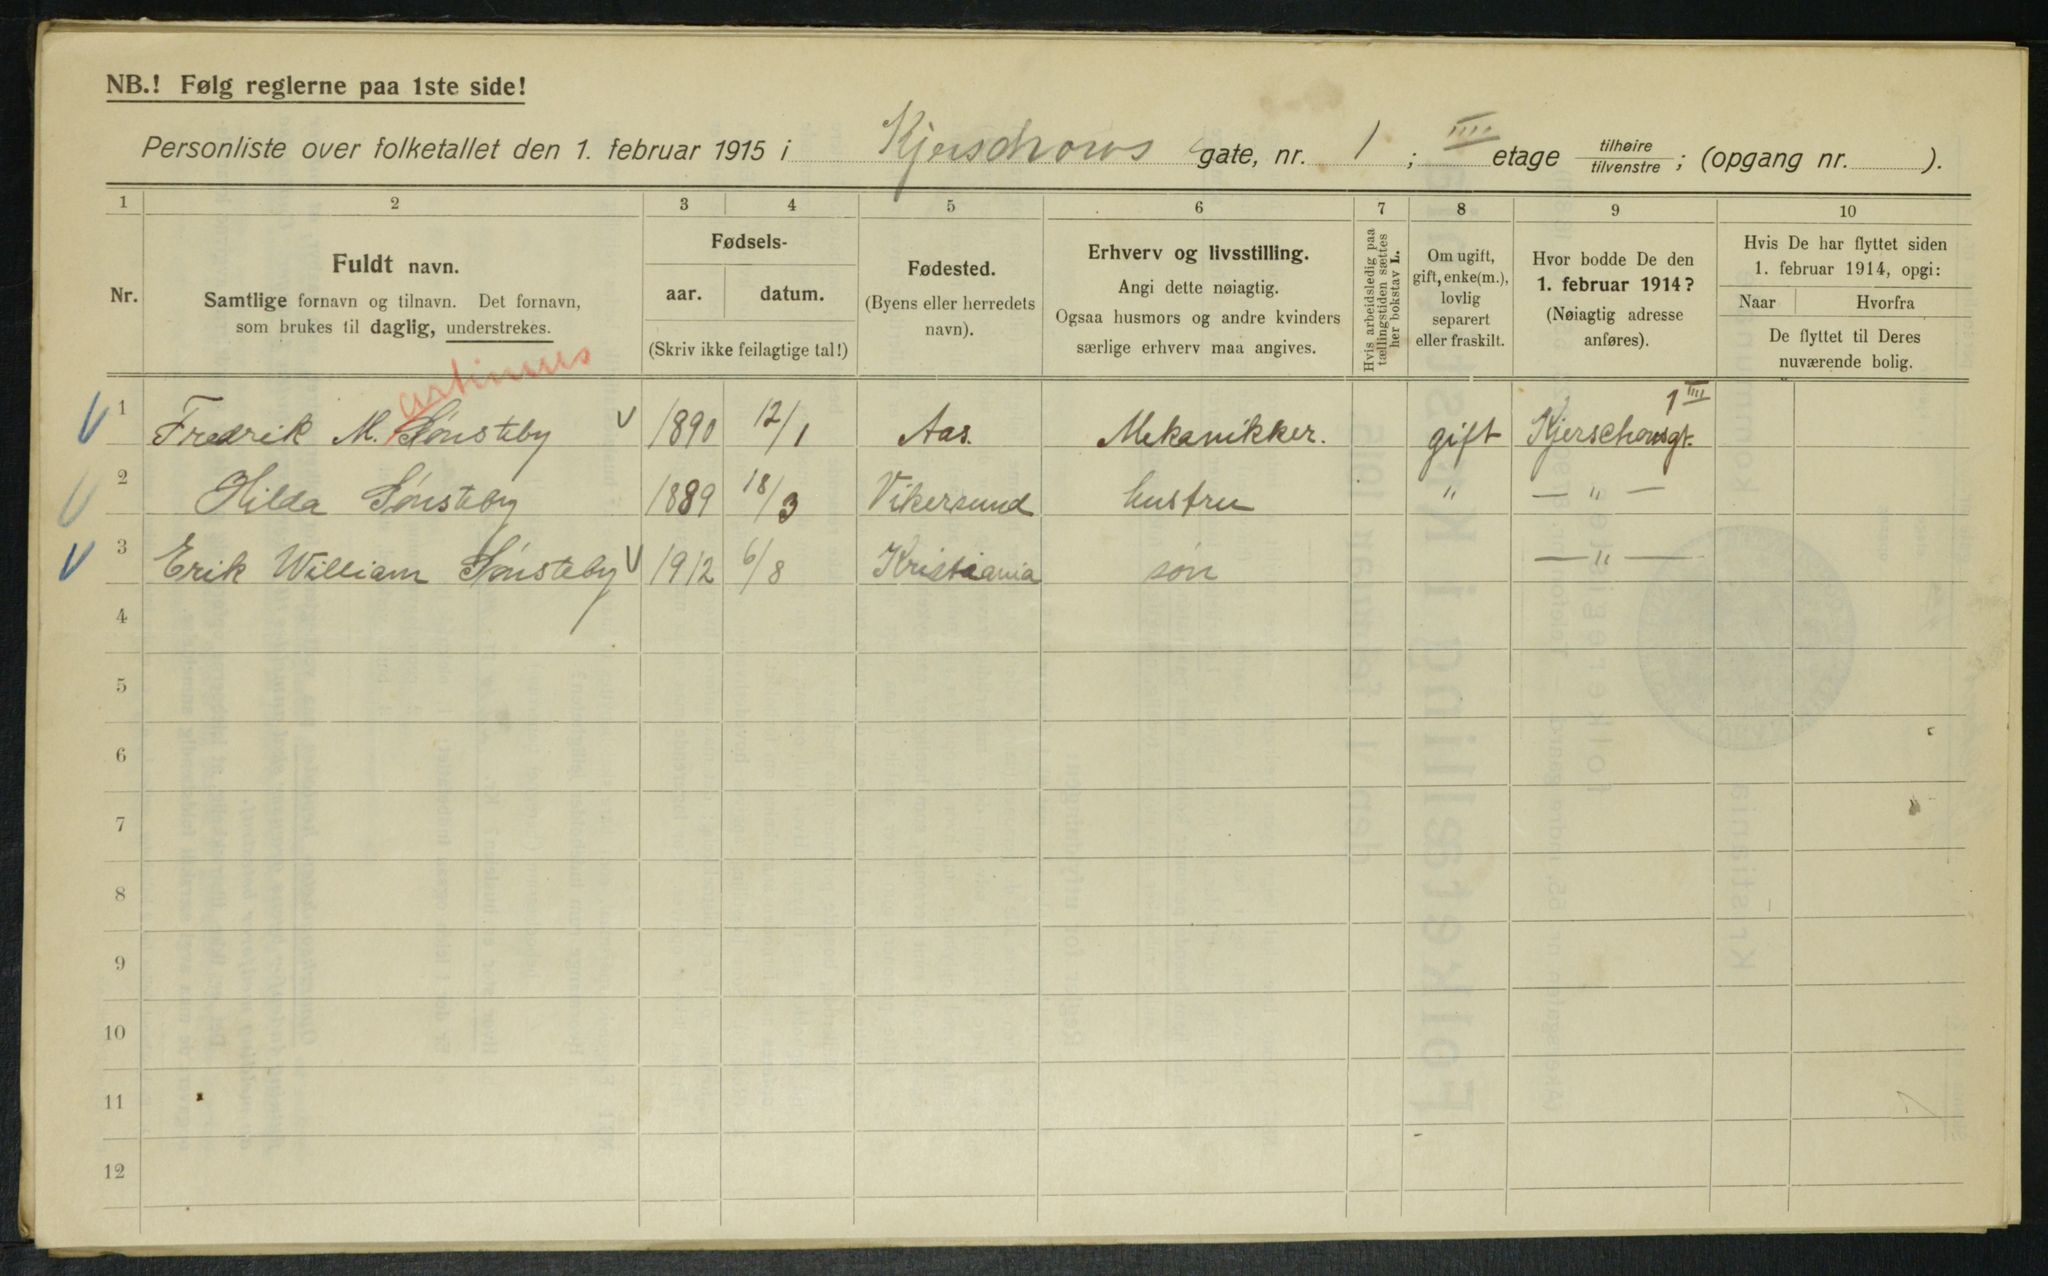 NB.! Følg reglerne paa 1ste side!
Personliste over folketallet den 1. februar 1915 i Kjerschows gate, nr. 1 ; IIII etage tilhøire/tilvenstre ; (opgang nr. ).
1 2 3 4 5 6 7 8 9 10
Nr.
Fuldt navn.
Samtlige fornavn og tilnavn. Det fornavn,
som brukes til daglig, understrekes.
Fødsels-
aar. datum.
(Skriv ikke feilagtige tal!)
Fødested.
(Byens eller herredets
navn).
Erhverv og livsstilling.
Angi dette nøiagtig.
Ogsaa husmors og andre kvinders
særlige erhverv maa angives.
Hvis arbeidsledig paa
tællingstiden sættes
her bokstav L.
Om ugift,
gift, enke(m.),
lovlig
separert
eller fraskilt.
Hvor bodde De den
1. februar 1914?
(Nøiagtig adresse
anføres).
Hvis De har flyttet siden
1. februar 1914, opgi:
Naar Hvorfra
De flyttet til Deres
nuværende bolig.
artinus
1 IIII
1 Fredrik M. Sønsteby V 1890 12/1 Aas. Mekanikker. gift Kjerschowsgt.
2 Hilda Sønsteby 1889 18/3 Vikersund hustru " — " —
3 Erik William Sønsteby V 1912 6/8 Kristiania søn — " —
4
5
6
7
8
9
10
11
12